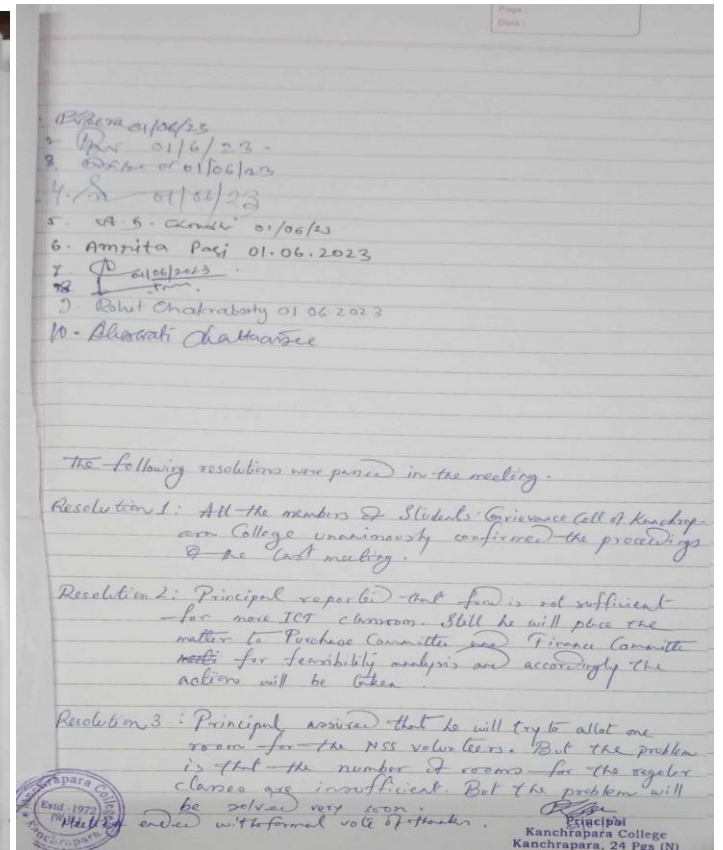 Page :
Date :
01/06/23
2. 01/6/23 -
3. 01/06/23
4. 01/06/23
5. A. S. 01/06/23
6. Amrita Pasi 01.06.2023
7. 01/06/2023
8.
9. Rohit Chakraborty 01 06 2023
10 -
The following resolutions were passed in the meeting.
Resolution 1: All the members of Students' Grievance Cell of Kanchrap-
ara College unanimously confirmed the proceedings
of the last meeting.
Resolution 2: Principal reported that fund is not sufficient
for more ICT classroom. Still he will place the
matter to Purchase Committee and Finance Committe
for feasibility analysis and accordingly the
action will be taken.
Resolution 3 : Principal assured that he will try to allot one
room for the NSS volunteers. But the problem
is that the number of rooms for the regular
classes are insufficient. But the problem will
be solved very soon.
Meeting ended with formal vote of thanks.
Kanchrapara College
Estd.-1972
Kanchrapara
Principal
Kanchrapara College
Kanchrapara, 24 Pgs (N)